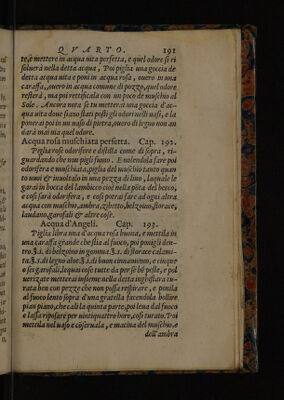 QVARTO. 191
te, e mettere in acqua vita perfetta, e quel odore si ri
soluerà nella detta acqua, Poi piglia una goccia de
detta acqua uita e poni in acqua rosa, ouero in una
caraffa, ouero in acqua comune di pozzo, quel odore
resterà, ma poi rettificala con un poco de muschio al
Sole. Ancora nota se tu metterai una goccia d'ac
qua uita doue siano stati posti gli odori nelli uasi, e la
ponerai poi in un uaso di pietra, ouero di legno non an
darà mai uia quel odore.
Acqua rosa muschiata perfetta. Cap. 192.
Piglia rose odorifere e distilla come di sopra, ri-
guardando che non pigli fumo. E uolendola fare poi
odorifera e muschiata, piglia del muschio tanto quan
to uuoi & inuoltalo in una pezza di lino, laquale le
garai in bocca del lambicco cioè nella pōta del becco,
e cosi sarà odorifera, e cosi potrai fare ad ogni altra
acqua con muschio, ambra, zibetto, belzoino, storace,
laudano, garofali & altre cose.
Acqua d'Angeli. Cap. 193.
Piglia libra una d'acqua rosa buona, e mettila in
una caraffa grande che stia al fuoco, poi ponigli den-
tro. ℥.i. di belzoino in gomma ℥.i. di storace calami-
ta ℥.i. di legno aloe ℥.i. di buon cinamomo, e cinque
o sei garofali, lequai cose tutte da per sè bē peste, e pol
uerizate metterai insieme nella detta inghistara tu-
rata ben con pezze che non possa respirare, e ponila
al fuoco lento sopra d'una gratella facendola bollire
pian piano, che cali la quinta parte, poi leua dal fuoco
e lassa riposare per uintiquattro hore, cosi turato. Poi
mettila nel uaso e cōseruala, e macina del muschio, e
dell'ambra